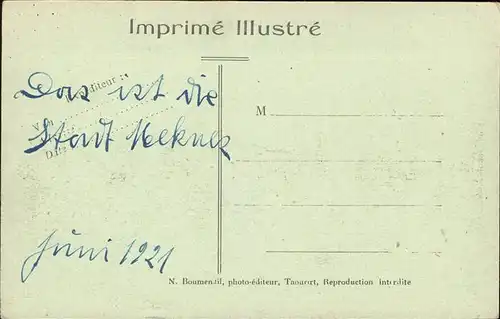 Imprimé Illustré
éditeur :
Das ist die
V
Stadt Meknes
D
M
Juni 1921
N. Boumendil, photo-éditeur, Taourirt, Reproduction interdite